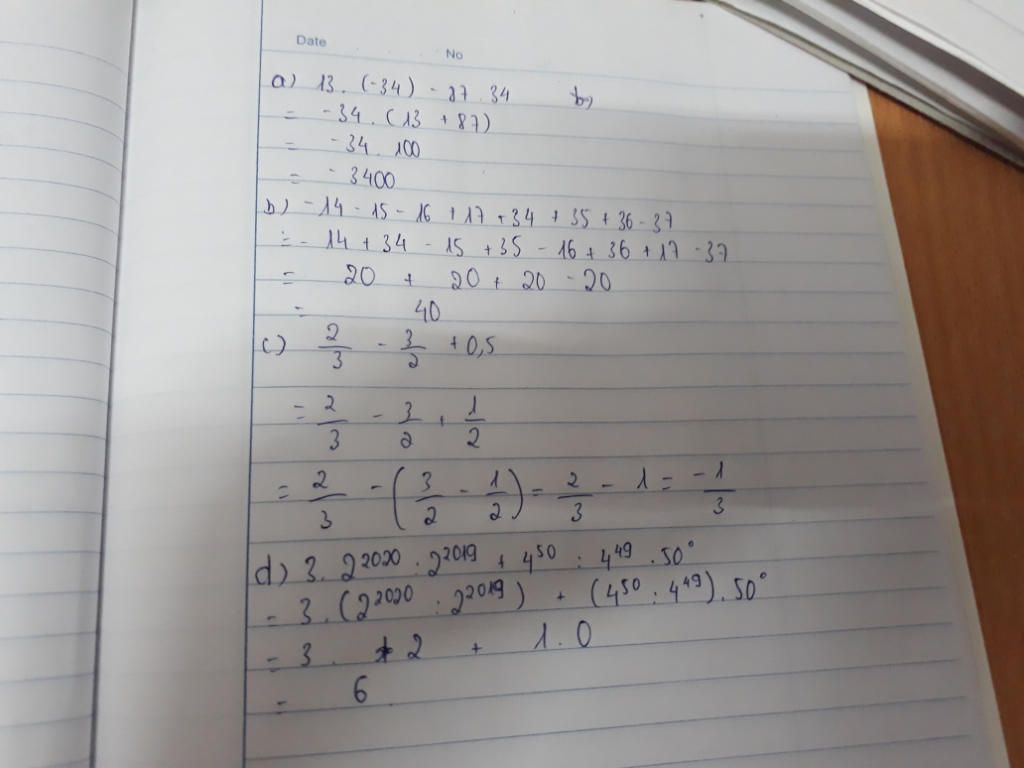 Date
No
a) 13. (-34) - 87.34 b)
= -34.(13 + 87)
= -34.100
= -3400
b) -14 - 15 - 16 + 17 + 34 + 35 + 36 - 37
= -14 + 34 - 15 + 35 - 16 + 36 + 17 - 37
= 20 + 20 + 20 - 20
= 40
c) 2/3 - 3/2 + 0,5
= 2/3 - 3/2 + 1/2
= 2/3 - (3/2 - 1/2) = 2/3 - 1 = -1/3
d) 3. 2²⁰²⁰ : 2²⁰¹⁹ + 4⁵⁰ : 4⁴⁹ . 50⁰
= 3. (2²⁰²⁰ : 2²⁰¹⁹) + (4⁵⁰ : 4⁴⁹). 50⁰
= 3 . 2 + 1.0
= 6